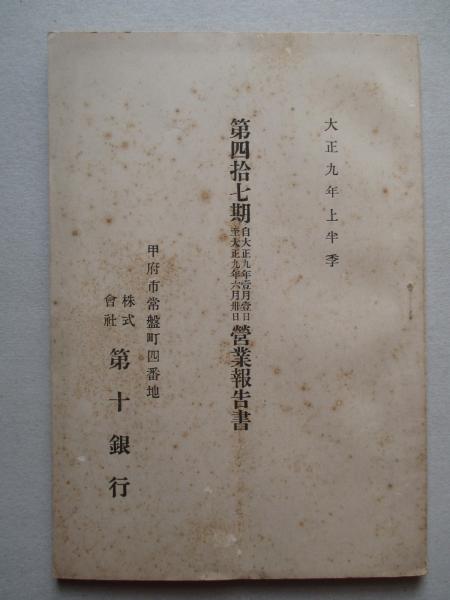 大正九年上半季
第四拾七期自大正九年壹月壹日至大正九年六月卅日營業報告書
甲府市常盤町四番地
株式會社第十銀行